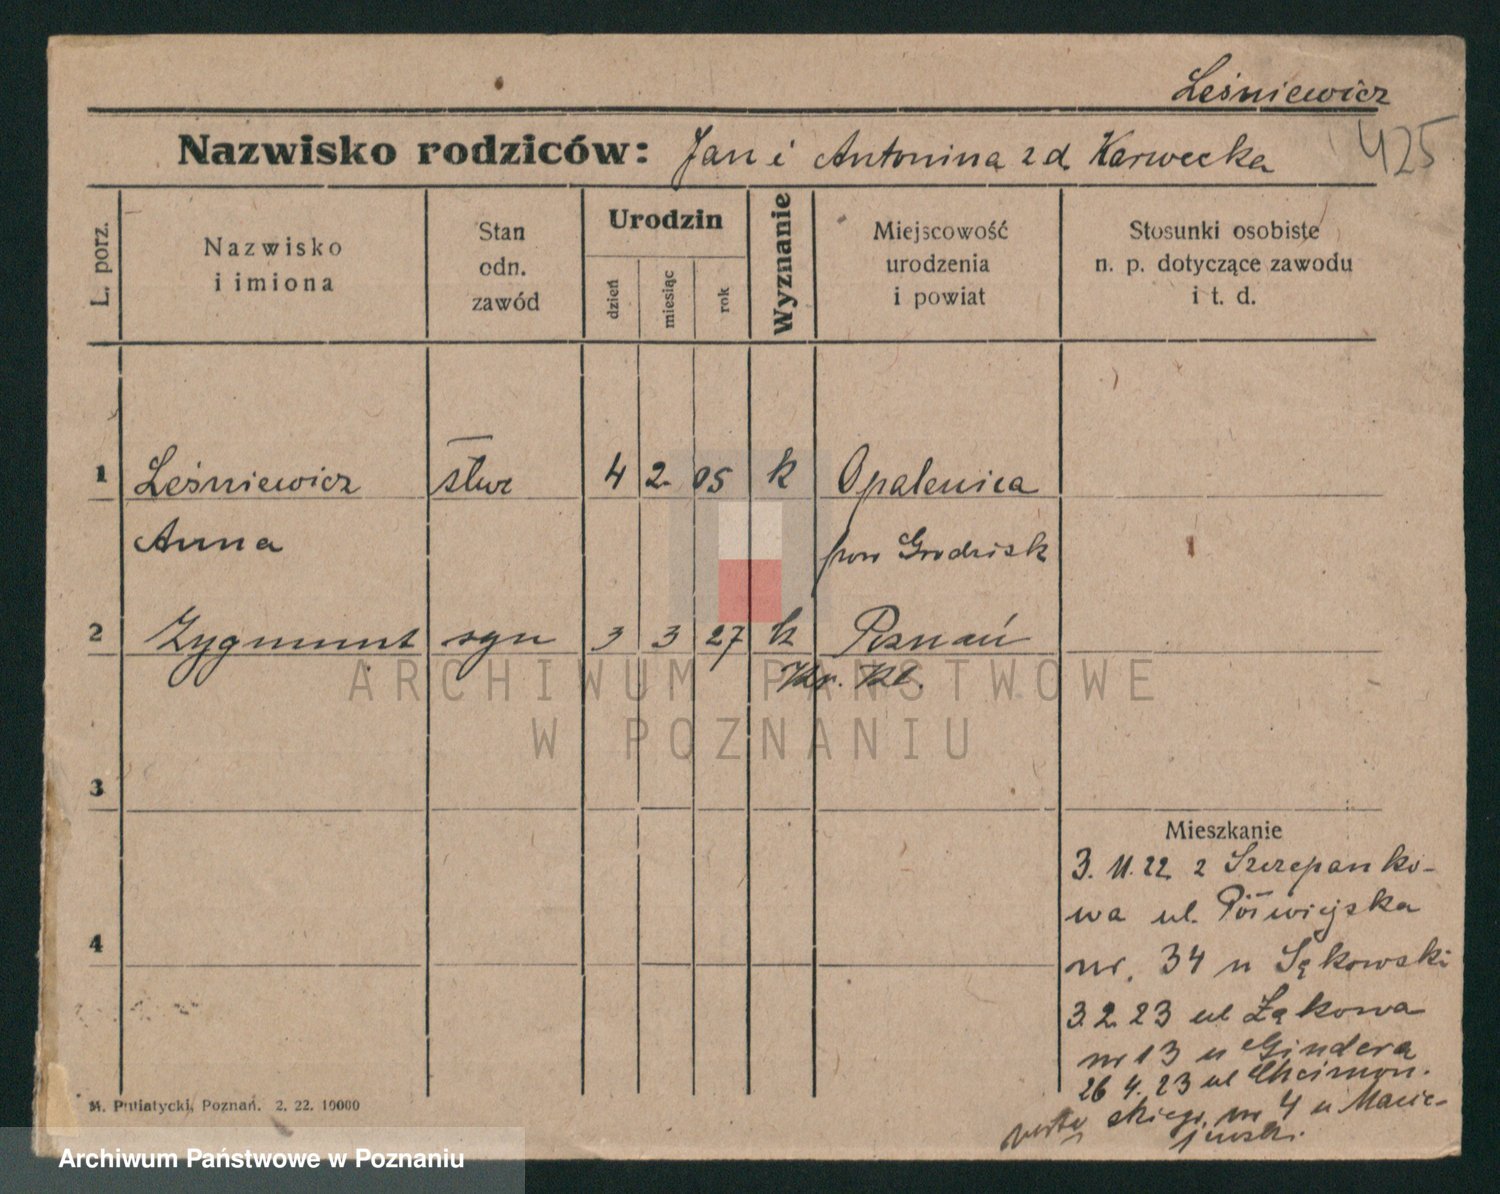 Leśniewicz
425
Nazwisko rodziców: Jan i Antonina z d. Karwecka
L. porz.
Nazwisko
i imiona
Stan
odn.
zawód
Urodzin
dzień
miesiąc
rok
Wyznanie
Miejscowość
urodzenia
i powiat
Stosunki osobiste
n. p. dotyczące zawodu
i t. d.
1 Leśniewicz służ 4 2. 05 k Opalenica
Anna pow Grodzisk
2 Zygmunt syn 3 3 27 k Poznań
Kr. Kl.
ARCHIWUM PAŃSTWOWE
W POZNANIU
3
Mieszkanie
3. 11. 22 z Szczepanko-
wa ul. Półwiejska
4
nr. 34 u Sękowski
3. 2. 23 ul Łąkowa
nr 13 u Gindera
26 4. 23 ul Chcimon.
skiego, nr 4 u Macie-
jewski.
M. Putiatycki, Poznań. 2. 22. 10000
Archiwum Państwowe w Poznaniu